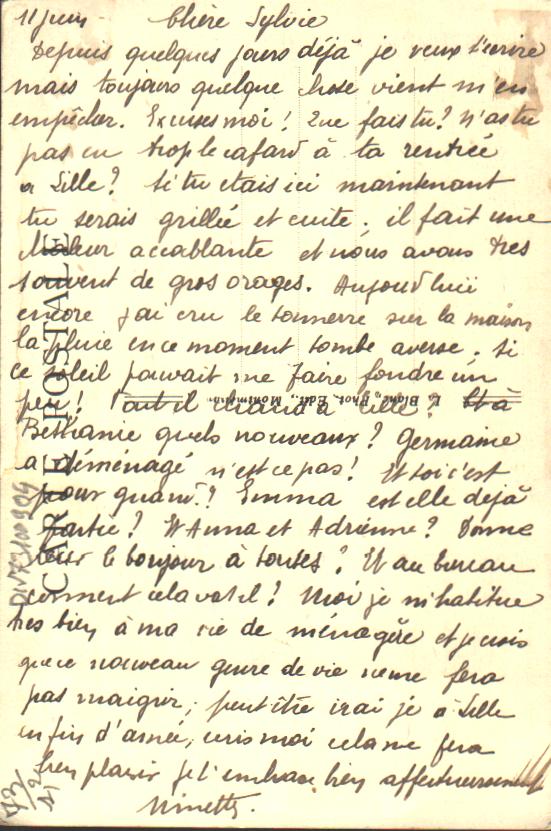 11 juin Chère Sylvie
Depuis quelques jours déjà je veux t'écrire
mais toujours quelque chose vient m'en
empêcher. Excuses moi! Que fais tu? N'as tu
pas eu trop le cafard à ta rentrée
a Lille? Si tu étais ici maintenant
tu serais grillée et cuite; il fait une
chaleur accablante et nous avons très
souvent de gros orages. Aujourd'hui
encore j'ai cru le tonnerre sur la maison
la pluie en ce moment tombe averse. Si
ce soleil pouvait me faire fondre un
peu! Fait il chaud à Lille? Et à
Béthanie quels nouveaux? Germaine
a déménagé n'est ce pas! Et toi c'est
pour quand? Emma est elle déjà
partie? Et Anna et Adrienne? Donne
leur le bonjour à toutes? Et au bureau
comment cela va t il? Moi je m'habitue
très bien à ma vie de ménagère et je crois
que ce nouveau genre de vie ne me fera
pas maigrir; peut être irai je à Lille
en fin d'année, écris moi cela me fera
bien plaisir je t'embrasse bien affectueusement
Ninette.
CARTE POSTALE
Blanc, Phot. Edit.,